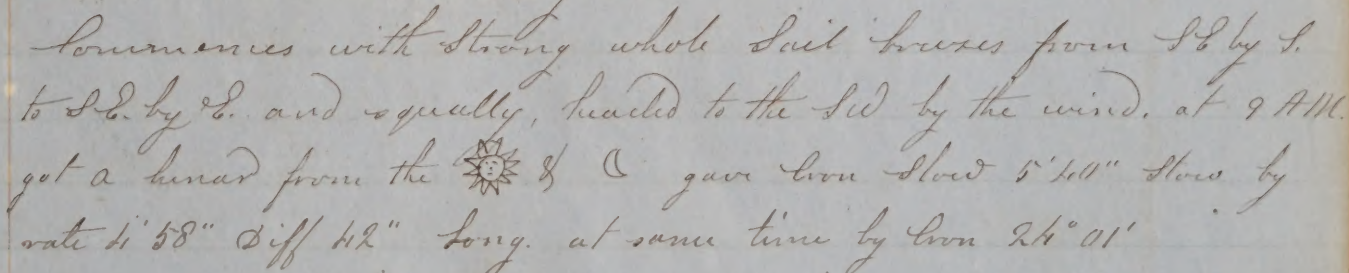 Commences with Strong whole Sail breezes from SE by S.
to SE. by E. and squally, headed to the SW by the wind. at 9 AM.
got a lunar from the ☀ & ☾ gave Cron Slow 5' 40" Slow by
rate 4' 58" Diff 42" Long. at same time by Cron 24° 01'